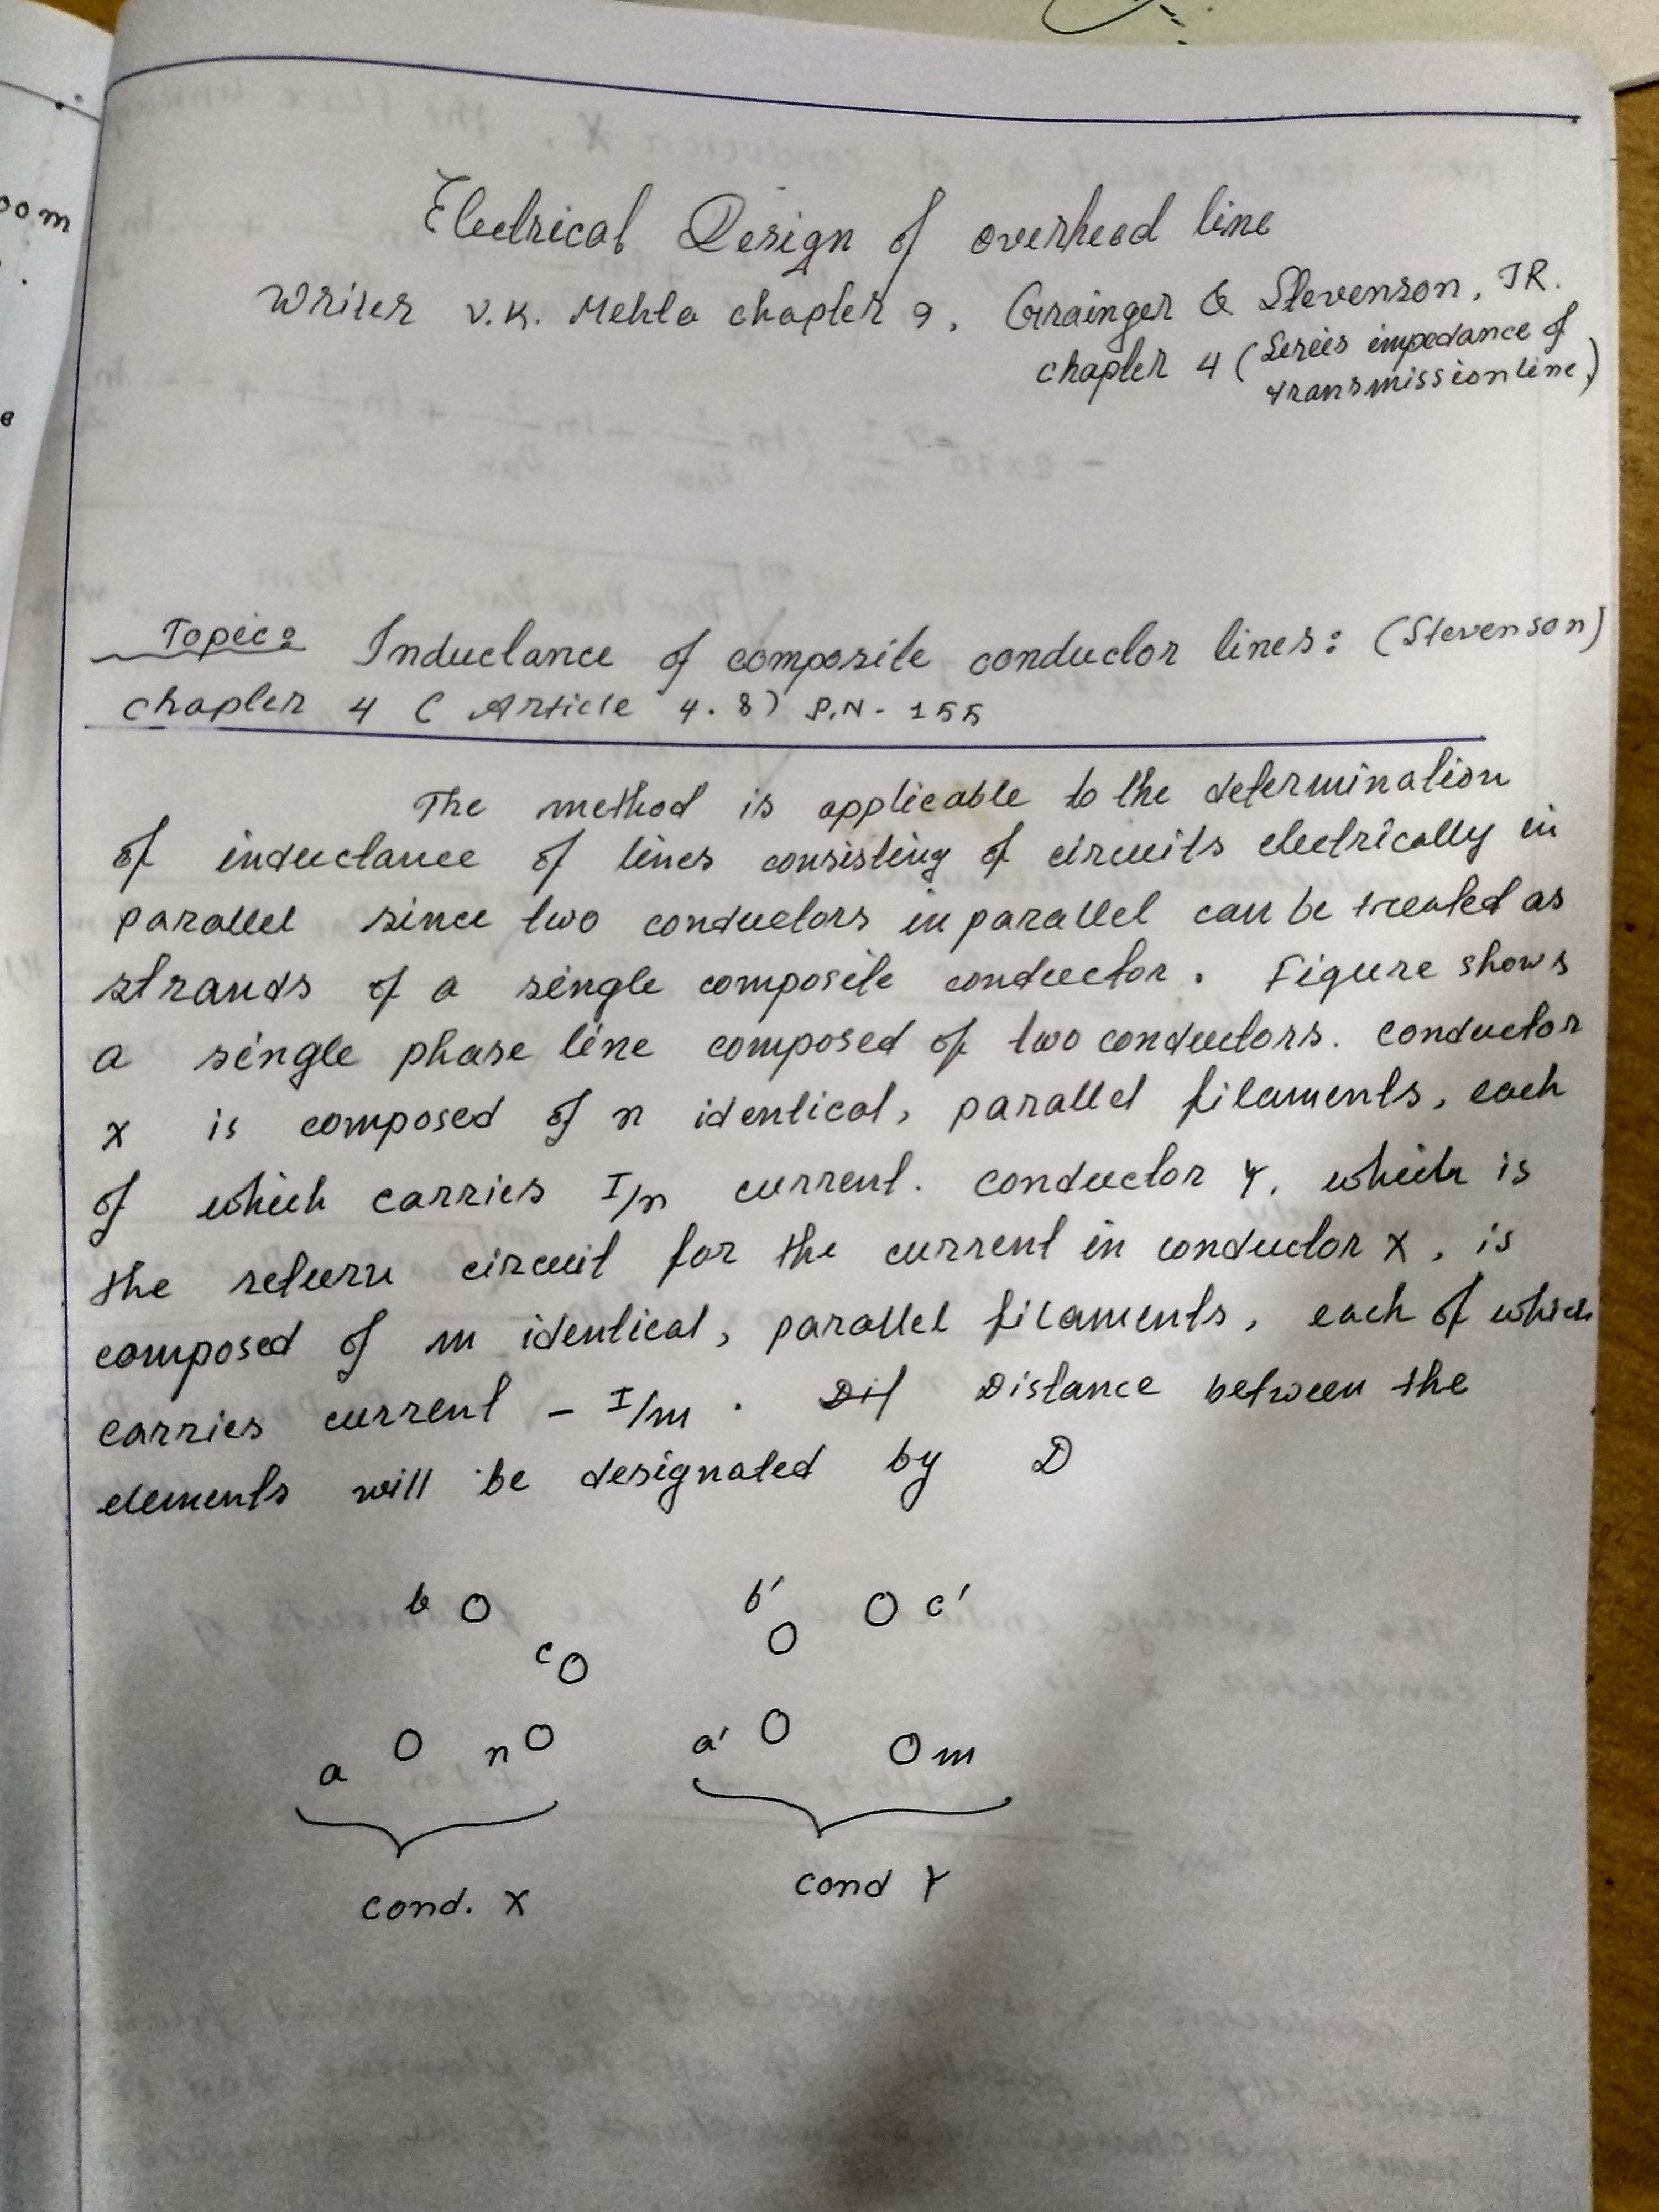 oom
e
Electrical Design of overhead line
Writer V.K. Mehta chapter 9, Grainger & Stevenson, JR.
chapter 4 (Series impedance of
transmission line)
Topic: Inductance of composite conductor lines: (Stevenson)
chapter 4 ( Article 4.8) P.N - 155
The method is applicable to the determination
of inductance of lines consisting of circuits electrically in
parallel since two conductors in parallel can be treated as
strands of a single composite conductor. Figure shows
a single phase line composed of two conductors. conductor
X is composed of n identical, parallel filaments, each
of which carries I/n current. conductor Y, which is
the return circuit for the current in conductor X, is
composed of m identical, parallel filaments, each of which
carries current - I/m . Distance between the
elements will be designated by D
b b' c'
c
a n a' m
cond. X cond Y